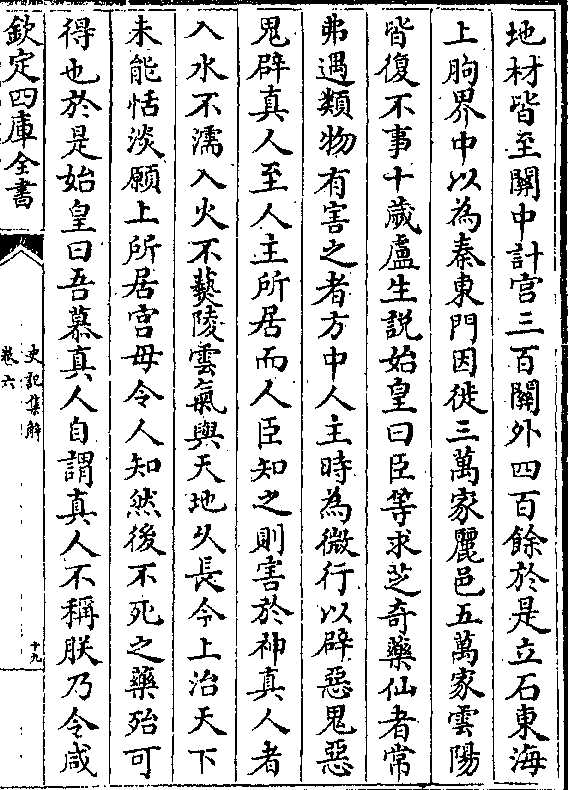 地材皆至關中計宫三百關外四百餘於是立石東海
上朐界中以為秦東門因徙三萬家麗邑五萬家雲陽
皆復不事十歲盧生説始皇曰臣等求芝奇藥仙者常
弗遇類物有害之者方中人主時為微行以辟惡鬼惡
鬼辟真人至人主所居而人臣知之則害於神真人者
入水不濡入火不爇陵雲氣與天地久長今上治天下
未能恬淡願上所居宫毋令人知然後不死之藥殆可
得也於是始皇曰吾慕真人自謂真人不稱朕乃令咸
欽定四庫全書
史記集解
卷六
十九